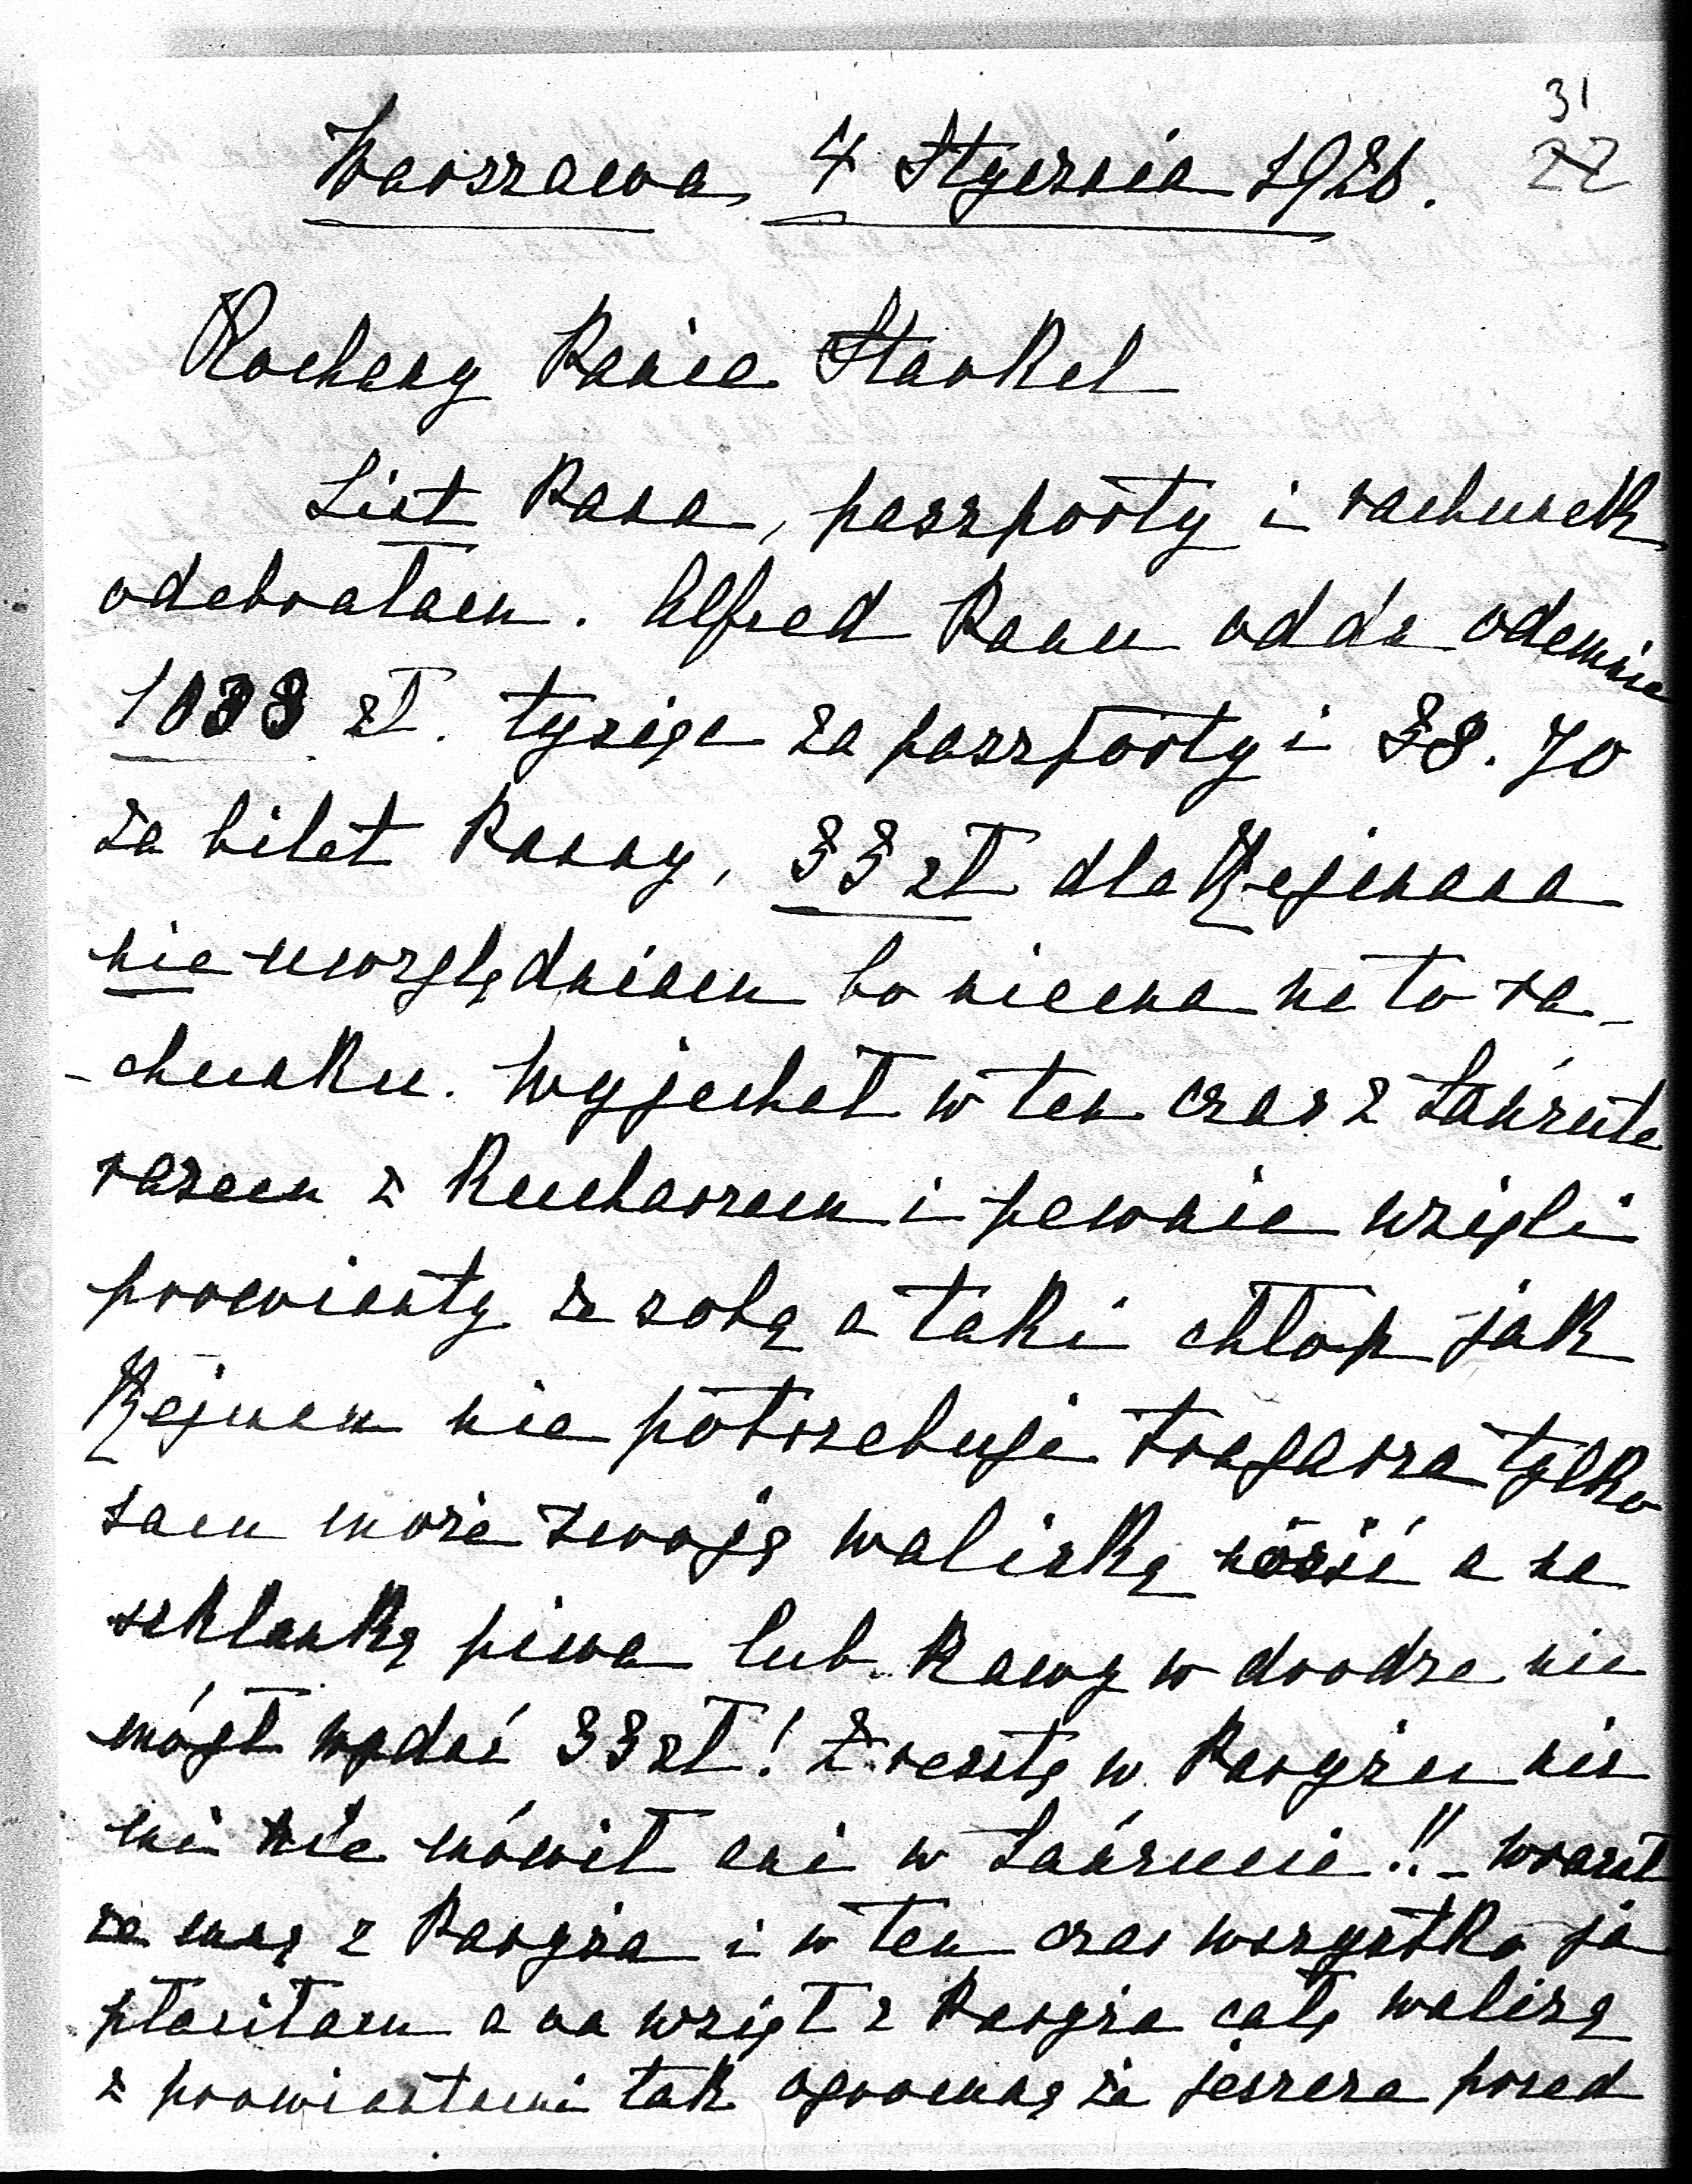 31
22
Warszawa, 4 Stycznia 1926.
Kochany Panie Stankel
List Pana, paszporty i rachunek
odebrałam. Alfred Panu odda odemnie
1038 zł. tysiąc za paszporty i 38.70
za bilet Panny, 33 zł dla Kejmana
nie uwzględniam bo niema na to ra-
-chunku. Wyjechał w ten czas z Łańcuta
razem z Kucharzem i pewnie wzięli
prowianty ze sobą a taki chłop jak
Kejman nie potrzebuje tragarza tylko
sam może swoję walizkę nosić a na
szklankę piwa lub kawy w drodze nie
mógł wydać 33 zł! Zresztą w Paryżu nic
mi nie mówił ani w Łańcucie!! - wracał
ze mną z Paryża i w ten czas wszystko ja
płaciłam a on wziął z Paryża całą walizę
z prowiantami tak ogromną że jeszcze przed